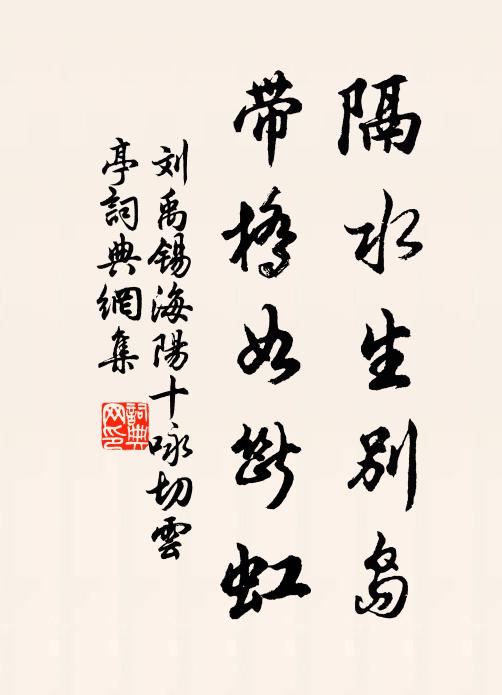 隔水生别岛
带桥如断虹
刘禹锡海陽十咏切雲
亭詞典網集
詞典
网印